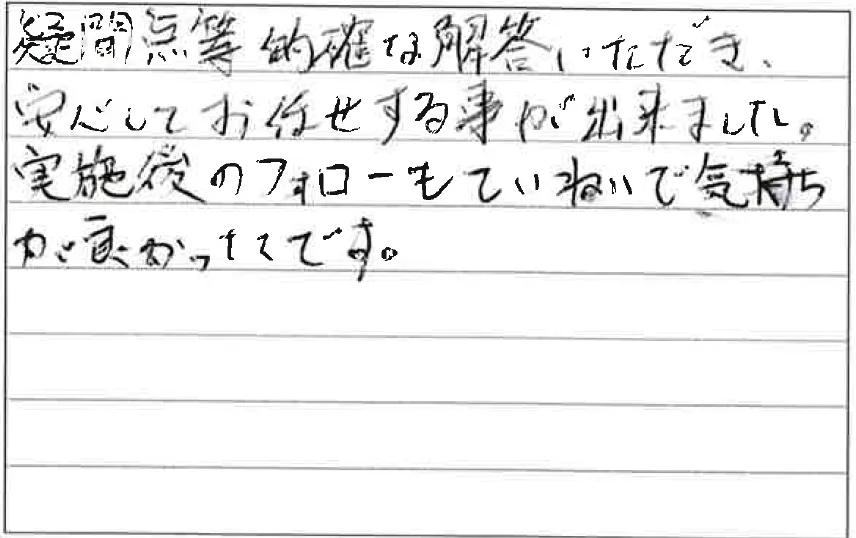 疑問点等的確な解答いただき、
安心してお任せする事が出来ました。
実施後のフォローもていねいで気持ち
が良かったです。